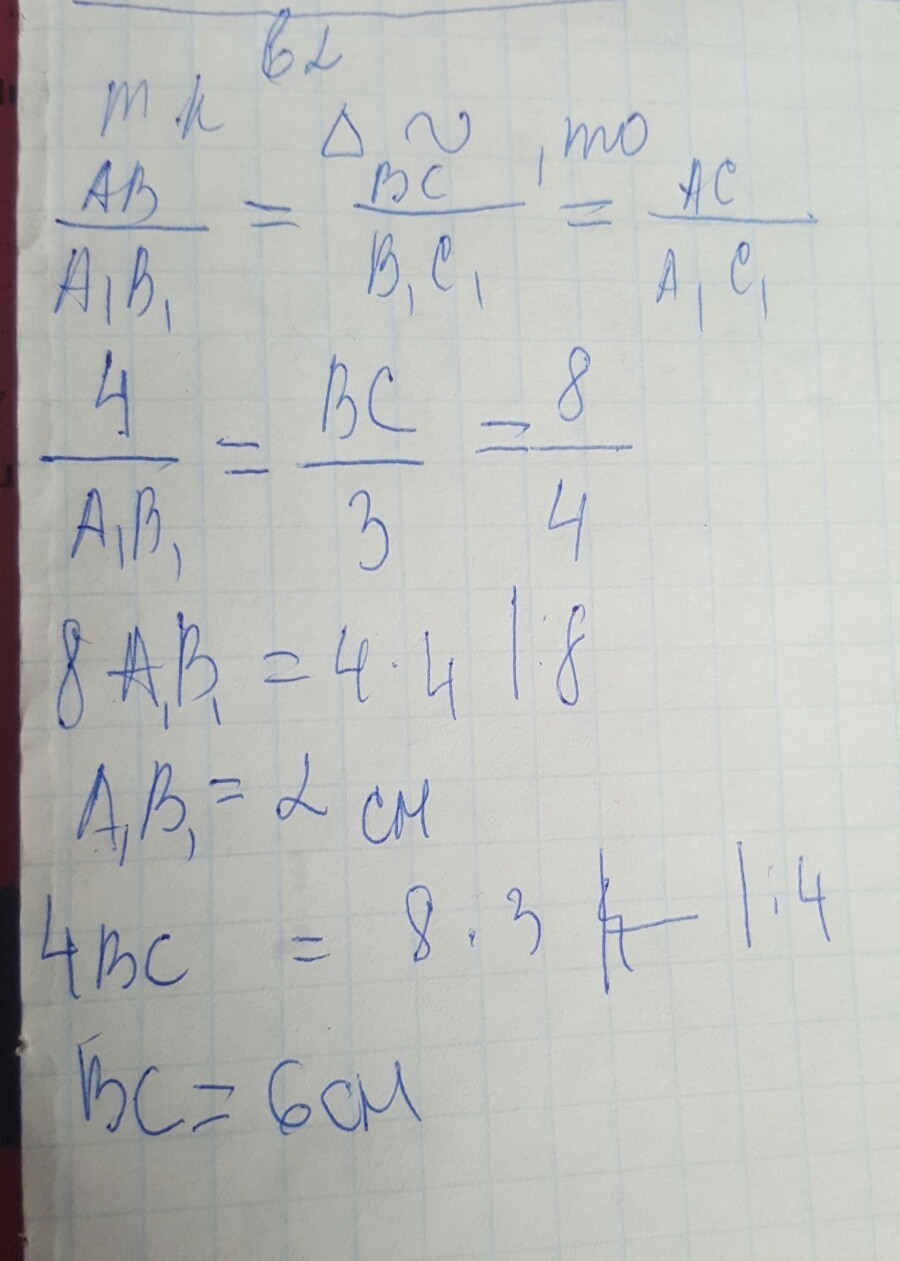 в2
т к △ ~ , то
AB/A₁B₁ = BC/B₁C₁ = AC/A₁C₁
4/A₁B₁ = BC/3 = 8/4
8 A₁B₁ = 4·4 |:8
A₁B₁ = 2 см
4BC = 8·3 |:4
BC = 6см